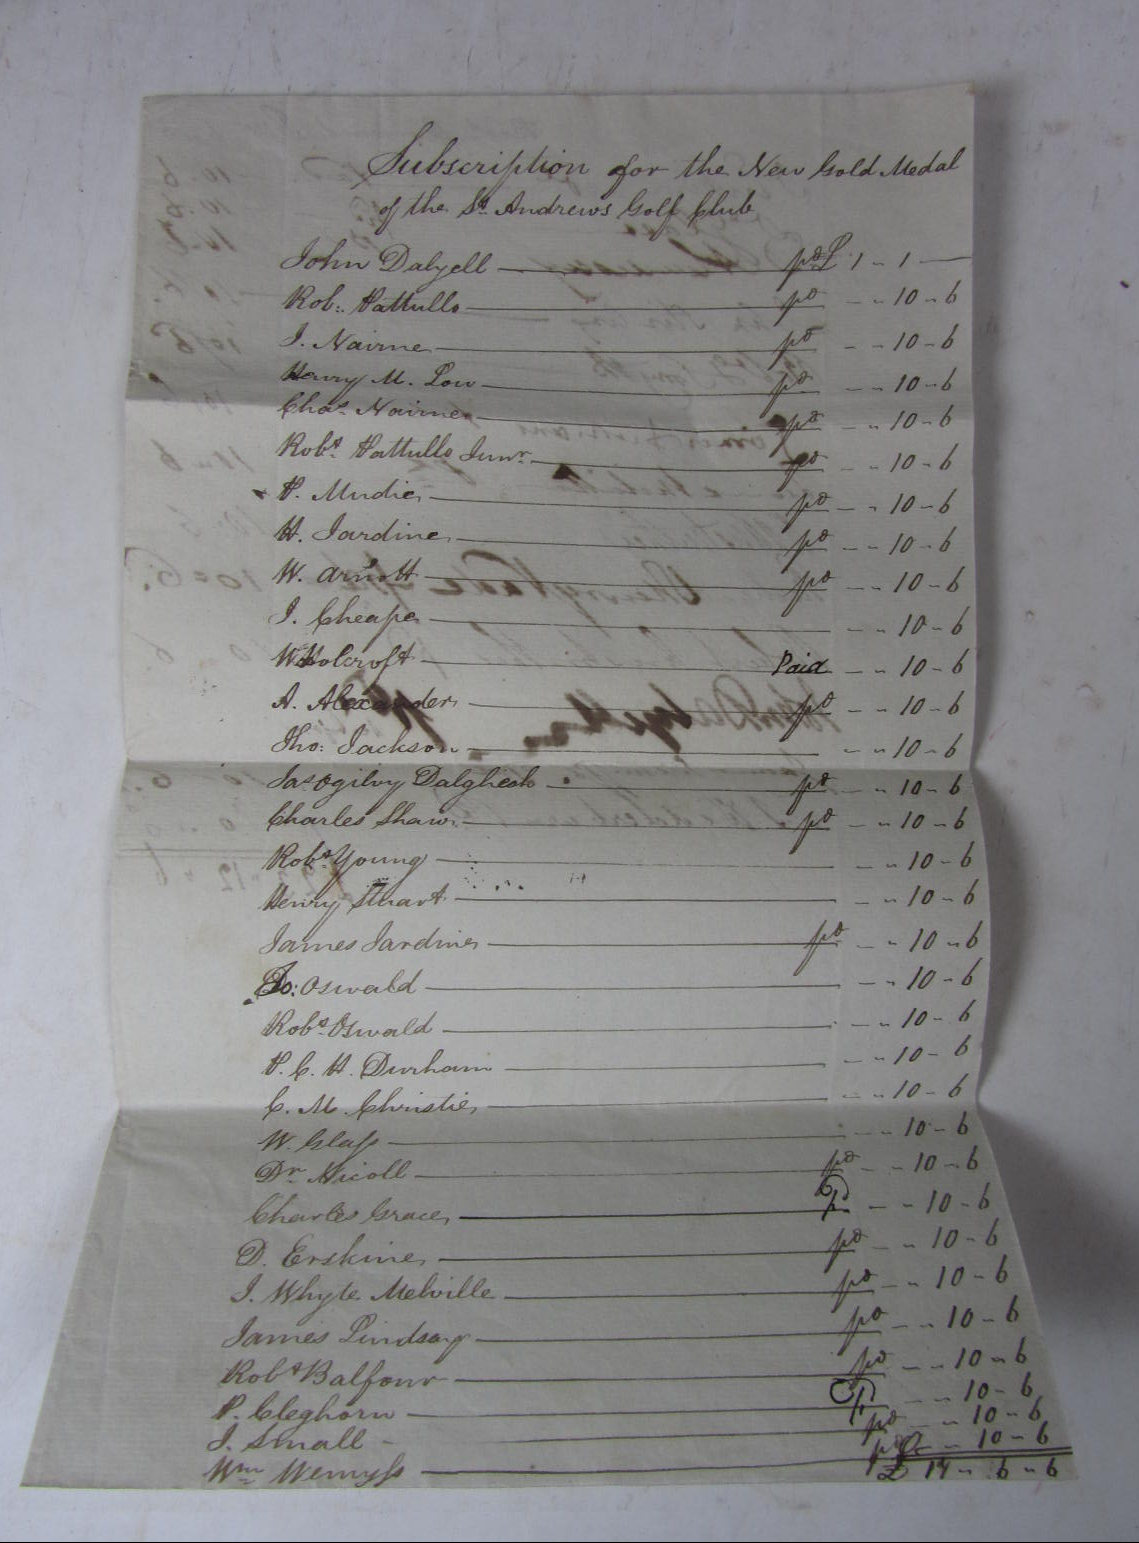 Subscription for the New Gold Medal
of the St. Andrews Golf Club
John Dalyell pd £ 1 - 1 -
Rob: Pattullo pd - - 10 - 6
J. Nairne pd - - 10 - 6
Henry M. Low pd - - 10 - 6
Chas. Nairne pd - - 10 - 6
Robt. Pattullo Junr. pd - - 10 - 6
P. Mudie pd - - 10 - 6
H. Jardine pd - - 10 - 6
W. Arnott pd - - 10 - 6
J. Cheape - - 10 - 6
W Holcroft Paid - - 10 - 6
A. Alexander pd - - 10 - 6
Tho: Jackson - - 10 - 6
Jas Ogilvy Dalgliesh pd - - 10 - 6
Charles Shaw pd - - 10 - 6
Robt. Young - - 10 - 6
Henry Stuart - - 10 - 6
James Jardine pd - - 10 - 6
Jo: Oswald - - 10 - 6
Robt Oswald - - 10 - 6
P. C. H. Durham - - 10 - 6
C. M. Christie - - 10 - 6
W. Glass - - 10 - 6
Dr. Nicoll pd - - 10 - 6
Charles Grace pd - - 10 - 6
D. Erskine pd - - 10 - 6
J. Whyte Melville pd - - 10 - 6
James Lindsay pd - - 10 - 6
Robt Balfour pd - - 10 - 6
P. Cleghorn - - 10 - 6
J. Small pd - - 10 - 6
Wm Wemyss pd - 10 - 6
£ 17 - 6 - 6